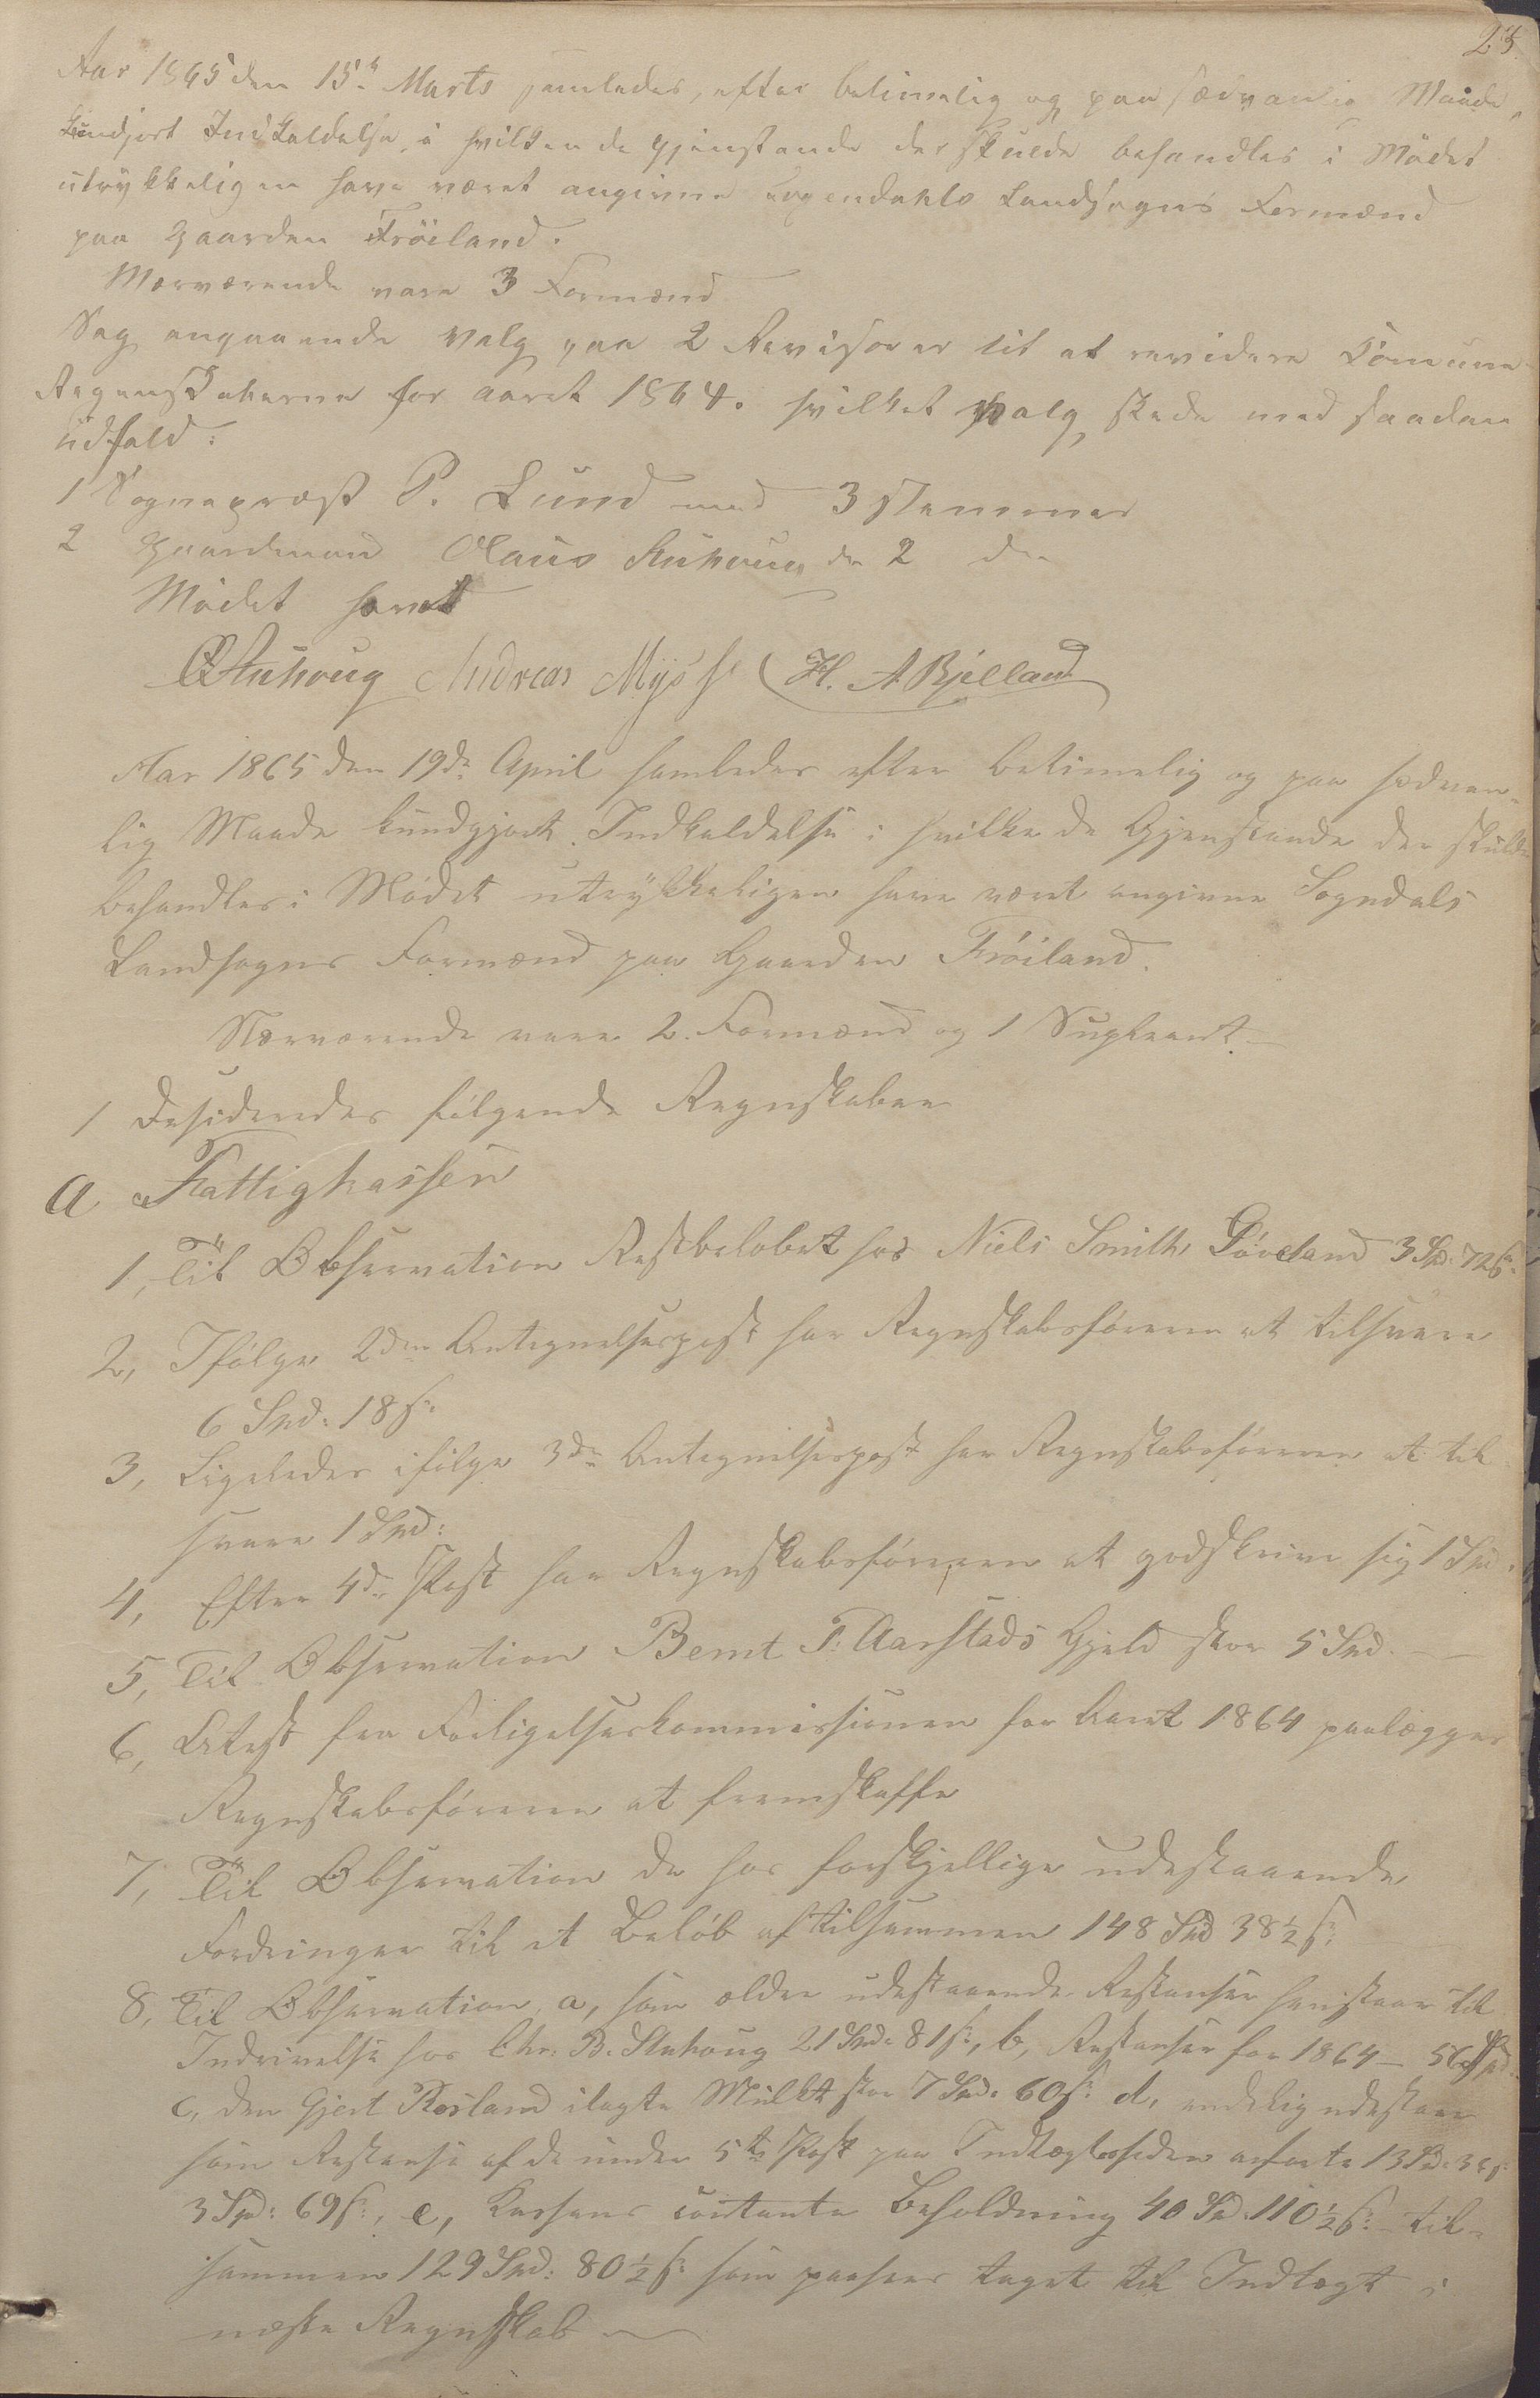 23.
Aar 1865 den 15de Marts samledes, efter betimelig og paa sædvanlig Maade,
kundjort Indkaldelse, i hvilken de Gjenstande der skulde behandles i Mødet
utrykkeligen have været angivne Sogendahls Landsogns Formænd
paa Gaarden Frøiland.
Nærværende vare 3 Formænd
Sag angaaende Valg paa 2 Revisorer til at revidere Comune
Regenskaberne for aaret 1864. hvilket Valg skede med saadan
udfald:
1 Sogneprest P. Lund med 3 stemmer
2 Gaardmand Olaus Stuhoug do 2 do
Mødet hævet
O Stuhoug Andreas Mysse H. A Bjelland
Aar 1865 den 19de April samledes efter betimelig og paa sædvan-
lig Maade kundgjort Indkaldelse i hvilke de Gjenstande der skulde
behandles i Mødet utrykkeligen have været angivne Sogndals
Landsogns Formænd paa Gaarden Frøiland.
Nærværende vare 2 Formænd og 1 Supleant
1 Desideredes følgende Regnskaber
a Fattigkassen
1, Til Observation Restbeløbet hos Niels Smith Løveland 3 Spd: 72 s:
2, Ifølge 2den Antegnelsespost har Regnskabsføreren at tilsvare
6 Spd: 18 s:
3, Ligeledes ifølge 3de Antegnelsespost har Regnskabsføreren at til
svare 1 Spd:
4, Efter 4de Post har Regnskabsføreren at godskrive sig 1 Spd.
5, Til Observation Bernt T. Aarstads Gjeld stor 5 Spd.
6, Atest fra Forligelseskommissionen for Aaret 1864 paalægges
Regnskabsføreren at fremskaffe
7, Til Observation de hos forskjellige udestaaende
Fordringer til et Beløb af tilsammen 148 Spd 38½ s:
8, Til Observation a, som ældre udestaaende Restanser henstaar til
Indrivelse hos Chr. B. Stuhoug 21 Spd: 81 s:, b, Restanser for 1864 – 56 Spd.
c, den Gjert Røsland ilagte Mulkt stor 7 Spd: 60 s: d, endelig udestaar
som Restanse af de under 5te Post paa Indtægtssiden anførte 13 Spd: 38 s:
3 Spd: 69 s:, e, Kassens contante Beholdning 40 Spd 110½ s: til-
sammen 129 Spd: 80½ s: som paasees taget til Indtægt i
næste Regnskab